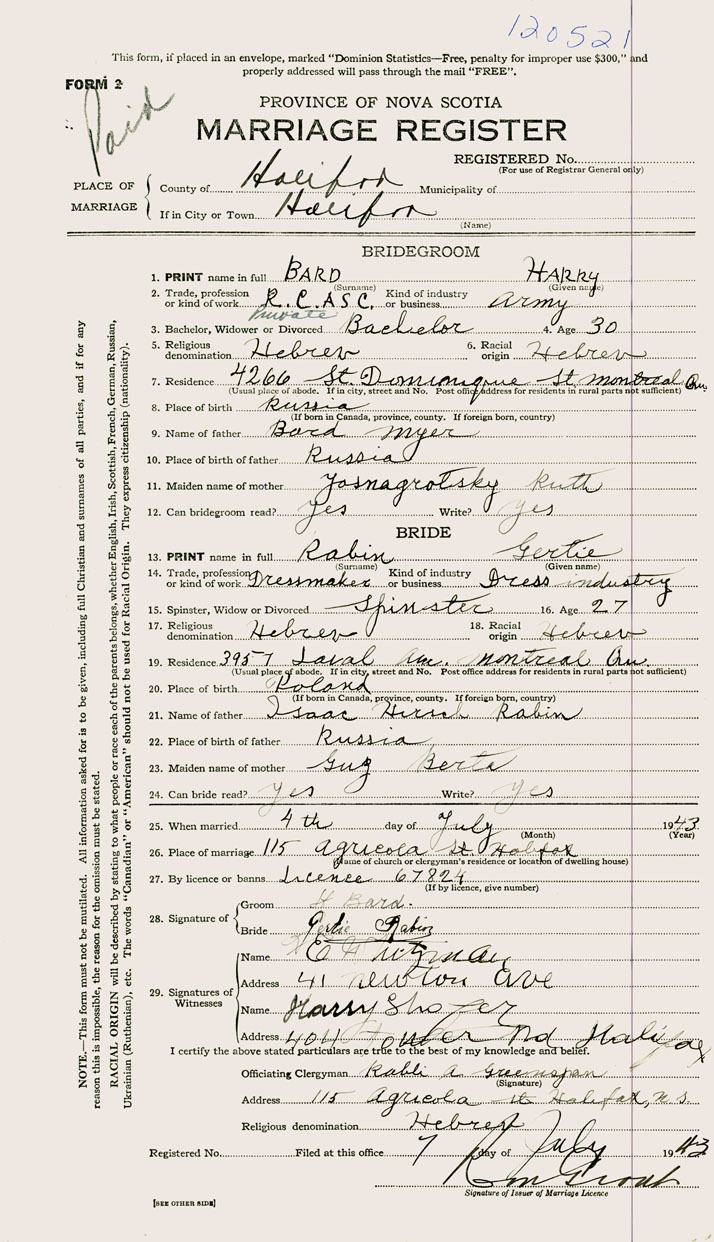 120521
This form, if placed in an envelope, marked "Dominion Statistics—Free, penalty for improper use $300," and
properly addressed will pass through the mail "FREE".
FORM 2
Paid
PROVINCE OF NOVA SCOTIA
MARRIAGE REGISTER
REGISTERED No.
(For use of Registrar General only)
PLACE OF MARRIAGE
County of Halifax Municipality of
If in City or Town Halifax
(Name)
BRIDEGROOM
1. PRINT name in full BARD HARRY
(Surname) (Given name)
2. Trade, profession or kind of work R.C.ASC. Private Kind of industry or business Army
3. Bachelor, Widower or Divorced Bachelor 4. Age 30
5. Religious denomination Hebrew 6. Racial origin Hebrew
7. Residence 4266 St. Dominique St Montreal Qu.
(Usual place of abode. If in city, street and No. Post office address for residents in rural parts not sufficient)
8. Place of birth Russia
(If born in Canada, province, county. If foreign born, country)
9. Name of father Bard Myer
10. Place of birth of father Russia
11. Maiden name of mother Yasnagrotsky Ruth
12. Can bridegroom read? Yes Write? Yes
BRIDE
13. PRINT name in full Rabin Gertie
(Surname) (Given name)
14. Trade, profession or kind of work Dressmaker Kind of industry or business Dress industry
15. Spinster, Widow or Divorced Spinster 16. Age 27
17. Religious denomination Hebrew 18. Racial origin Hebrew
19. Residence 3957 Laval Ave. Montreal Qu.
(Usual place of abode. If in city, street and No. Post office address for residents in rural parts not sufficient)
20. Place of birth Poland
(If born in Canada, province, county. If foreign born, country)
21. Name of father Isaac Hirsch Rabin
22. Place of birth of father Russia
23. Maiden name of mother Guz Berta
24. Can bride read? Yes Write? Yes
25. When married 4th day of July 1943
(Month) (Year)
26. Place of marriage 115 Agricola St. Halifax
(Name of church or clergyman's residence or location of dwelling house)
27. By licence or banns Licence 67824
(If by licence, give number)
28. Signature of
Groom H Bard.
Bride Gertie Rabin
29. Signatures of Witnesses
Name E
Address 41 Newton Ave
Name Harry Shofer
Address Rd Halifax
I certify the above stated particulars are true to the best of my knowledge and belief.
Officiating Clergyman Rabbi A Greenspan
(Signature)
Address 115 Agricola St Halifax, N.S.
Religious denomination Hebrew
Registered No. Filed at this office 7 day of July 1943
Signature of Issuer of Marriage Licence
[SEE OTHER SIDE]
NOTE.—This form must not be mutilated. All information asked for is to be given, including full Christian and surnames of all parties, and if for any
reason this is impossible, the reason for the omission must be stated.
RACIAL ORIGIN will be described by stating to what people or race each of the parents belongs, whether English, Irish, Scottish, French, German, Russian,
Ukrainian (Ruthenian), etc. The words "Canadian" or "American" should not be used for Racial Origin. They express citizenship (nationality).